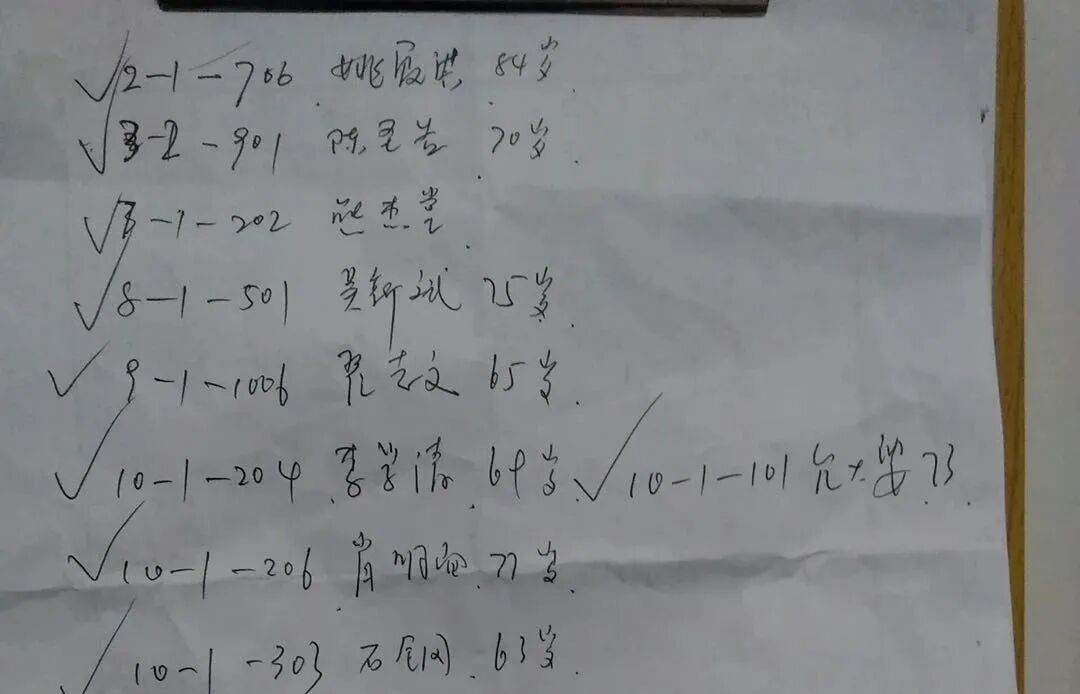 √2-1-706 姚 84岁
√3-2-901 陈 70岁
√3-1-202 熊杰堂
√8-1-501 吴新斌 75岁
√9-1-1006 翟志文 65岁
√10-1-204 李学清 69岁 √10-1-101 73
√10-1-206 肖明 77岁
√10-1-303 石 63岁